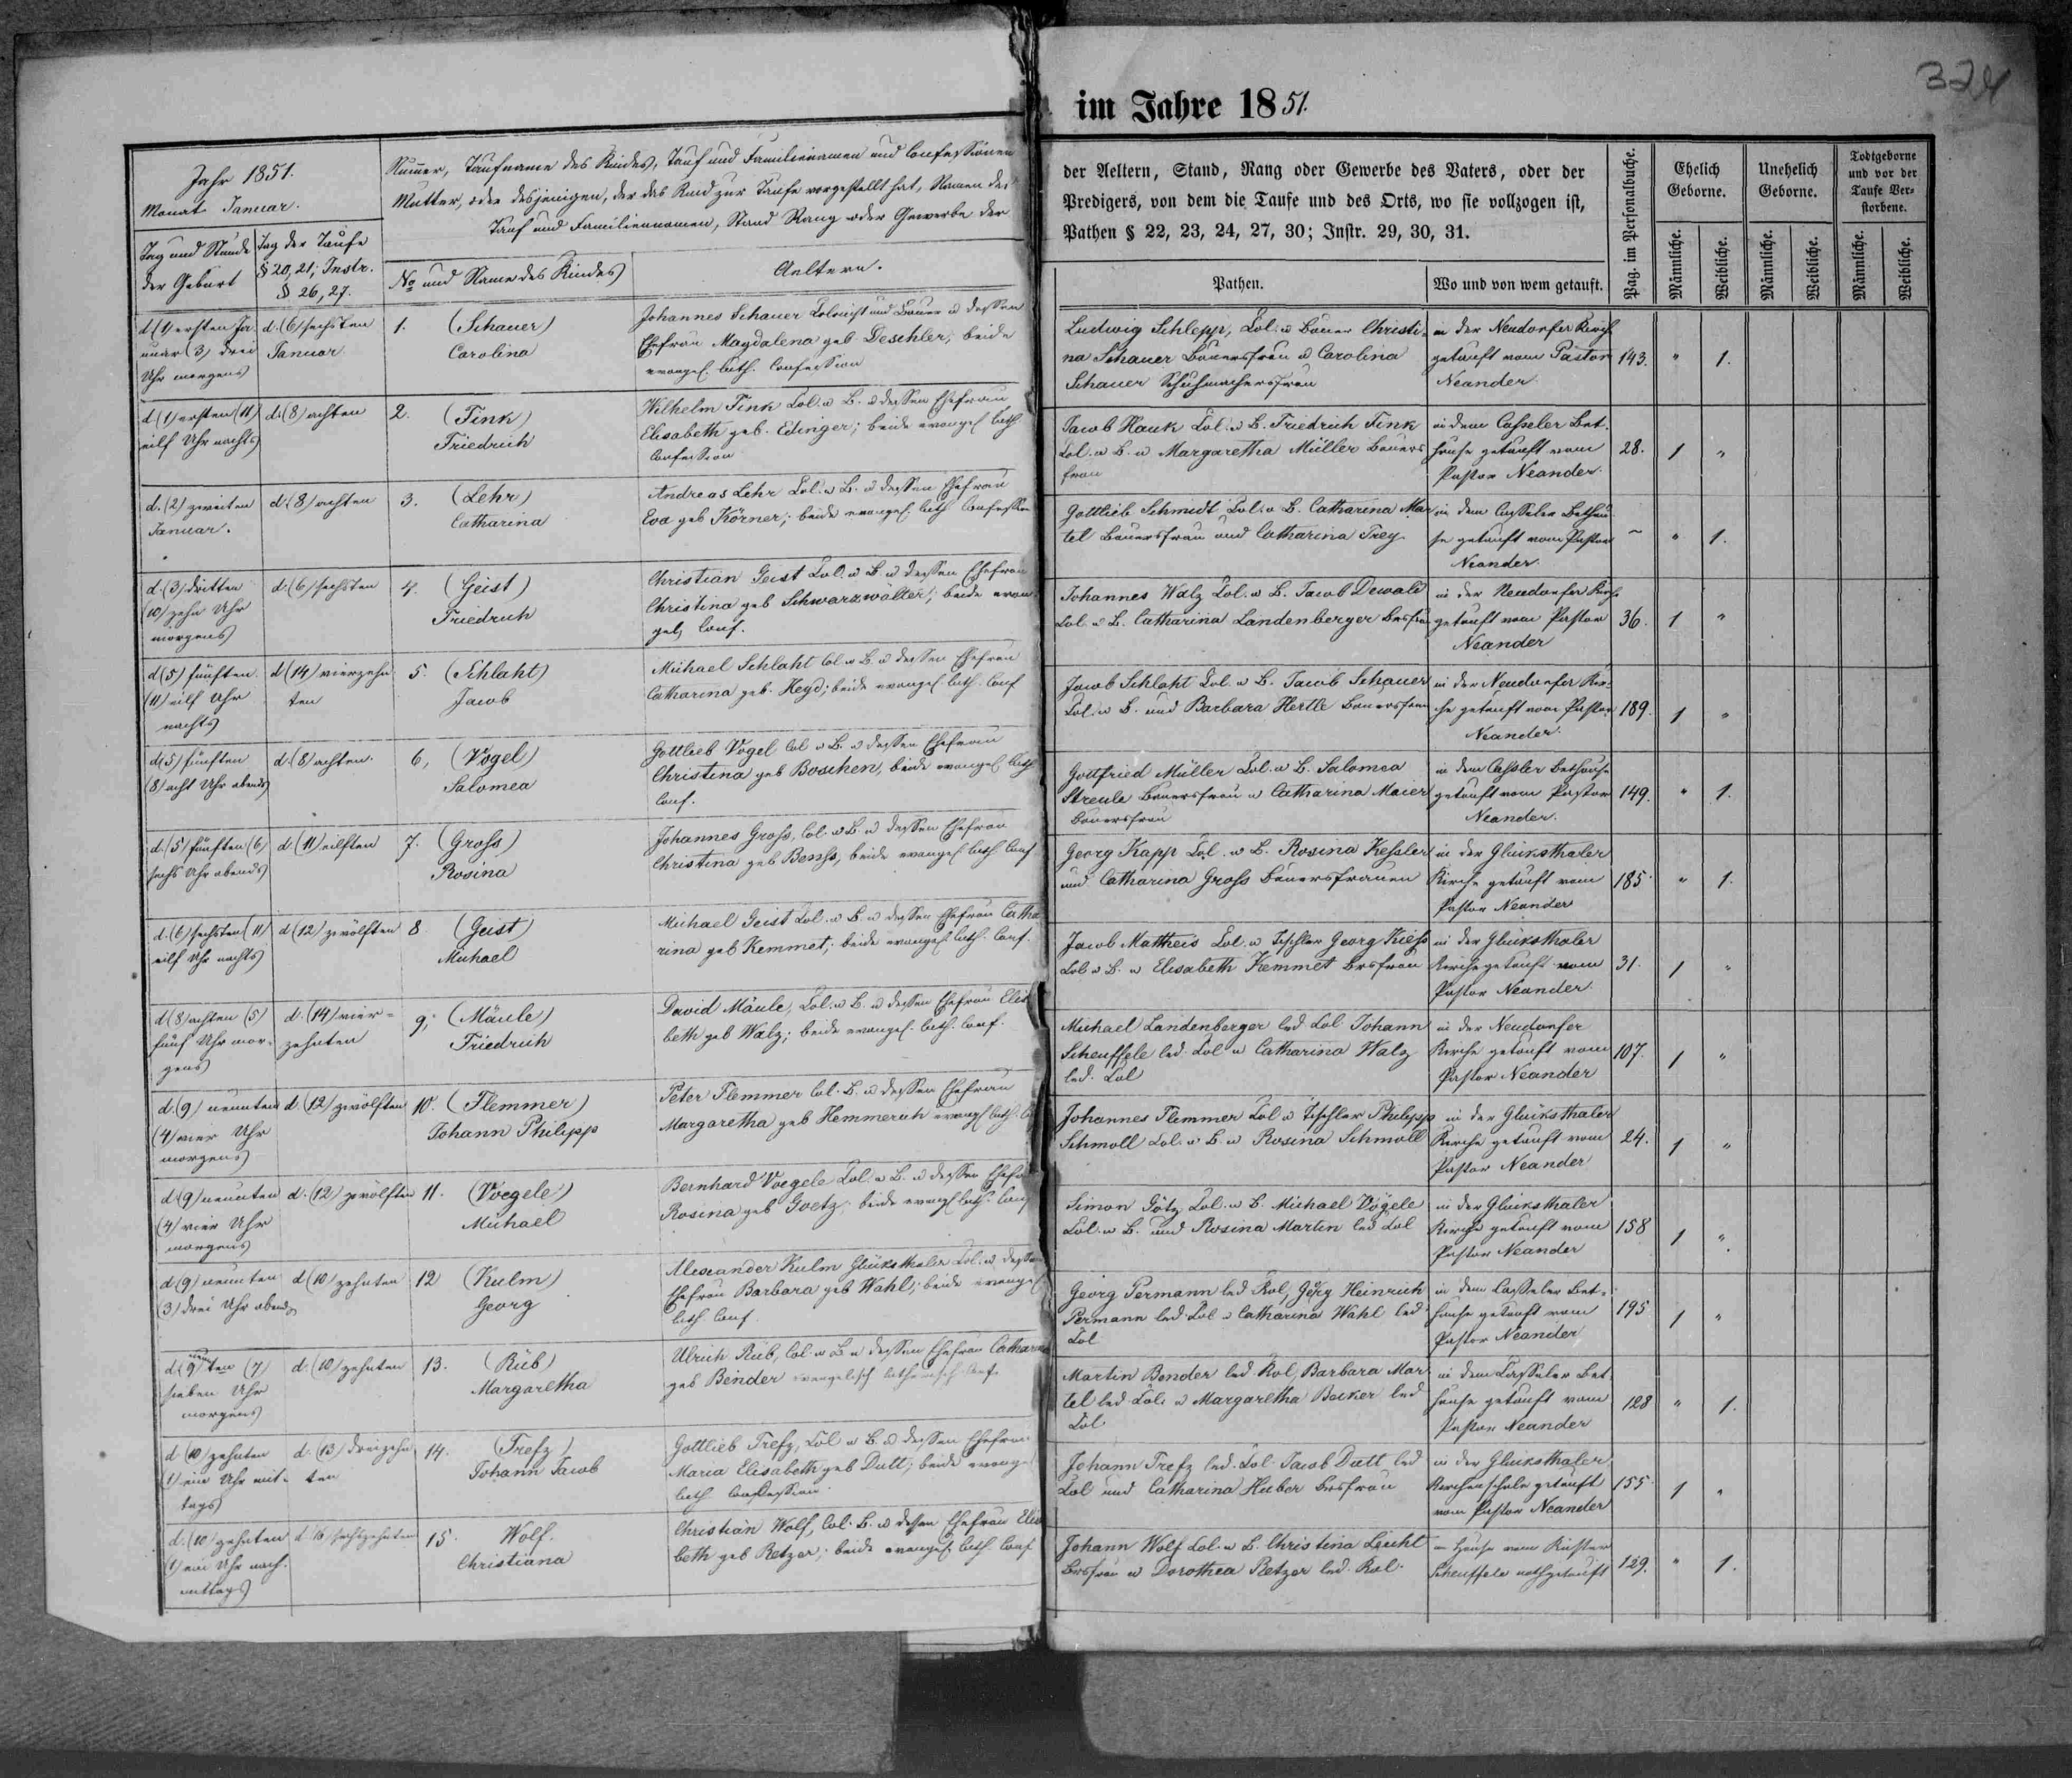 324
im Jahre 1851.
Jahr 1851.
Monat Januar.
Tag und Stunde
der Geburt
Tag der Taufe
§ 20, 21; Instr.
§ 26, 27.
Numer, Taufname des Kindes, Tauf und Familiennamen und Confessionen
Mutter, oder desjenigen, der das Kind zur Taufe vorgestellt hat, Namen des
Tauf und Familiennamen, Stand Rang oder Gewerbe der
No und Name des Kindes
Aeltern.
der Aeltern, Stand, Rang oder Gewerbe des Vaters, oder der
Predigers, von dem die Taufe und des Orts, wo sie vollzogen ist,
Pathen § 22, 23, 24, 27, 30; Instr. 29, 30, 31.
Pathen.
Wo und von wem getauft.
Pag. im Personalbuche.
Ehelich
Geborne.
Unehelich
Geborne.
Todtgeborne
und vor der
Taufe Ver-
storbene.
Männliche.
Weibliche.
Männliche.
Weibliche.
Männliche.
Weibliche.
d (1) ersten Ja-
nuar (3) drei
Uhr morgens
d. (6) sechsten
Januar
1. (Schauer)
Carolina
Johannes Schauer Colonist und Bauer u dessen
Ehefrau Magdalena geb Deschler; beide
evangel. luth. Confession
Ludwig Schlepp, Col. u Bauer Christi-
na Schauer Bauersfrau u Carolina
Schauer Schuhmachersfrau
in der Neudorfer Kirch
getauft vom Pastor
Neander
143. " 1.
d (1) ersten (11)
eilf Uhr nachts
d. (8) achten
2. (Fink)
Friedrich
Wilhelm Fink Col. u B. u dessen Ehefrau
Elisabeth geb. Edinger; beide evangel luth
Confession
Jacob Hauk Col. u B. Friedrich Fink
Col. u B. u Margaretha Müller Bauers
frau
in dem Casseler Bet-
hause getauft vom
Pastor Neander
28. 1 "
d. (2) zweiten
Januar.
d. (8) achten
3. (Lehr)
Catharina
Andreas Lehr Col. u B. u dessen Ehefrau
Eva geb Körner; beide evangel luth Confession
Gottlieb Schmidt Col. u B. Catharina Mar
tel Bauersfrau und Catharina Frey
in dem Casseler Bethau
se getauft vom Pastor
Neander.
~ " 1.
d. (3) dritten
(10) zehn Uhr
morgens
d. (6) sechsten
4. (Geist)
Friedrich
Christian Geist Col. u B. u dessen Ehefrau
Christina geb Schwarzwälter; beide evan
gel, Conf.
Johannes Walz Col. u B. Jacob Dewald
Col. u B. Catharina Landenberger Brsfrau
in der Neudorfer Kirch
getauft vom Pastor
Neander
36. 1 "
d (5) fünften
(11) eilf Uhr
nachts
d (14) vierzehn
ten
5. (Schlaht)
Jacob
Michael Schlaht Col u B. u dessen Ehefrau
Catharina geb. Heyd; beide evangel luth. Conf
Jacob Schlaht Col. u B. Jacob Schauer
Col. u B. und Barbara Hertle Bauersfrau
in der Neudorfer Kir-
che getauft vom Pastor
Neander.
189. 1 "
d (5) fünften
(8) acht Uhr abends
d. (8) achten.
6, (Vogel)
Salomea
Gottlieb Vogel Col u B. u dessen Ehefrau
Christina geb Boschen, beide evangel luth
Conf.
Gottfried Müller Col. u B. Salomea
Streule Bauersfrau u Catharina Maier
Bauersfrau
in dem Cassler Bethause
getauft vom Pastor
Neander.
149. " 1.
d. (5) fünften (6)
sechs Uhr abends
d. (11) eilften
7. (Gross)
Rosina
Johannes Gross, Col. u B. u dessen Ehefrau
Christina geb , beide evangel luth Conf
Georg Kapp Col. u B. Rosina Kessler
und Catharina Gross Bauersfrauen
in der Glücksthaler
Kirche getauft vom
Pastor Neander
185. " 1.
d. (6) sechsten (11)
eilf Uhr nachts
d (12) zwölften
8. (Geist)
Michael
Michael Geist Col. u B. u dessen Ehefrau Catha
rina geb Kemmet; beide evangel luth. Conf.
Jacob Mattheis Col. u Tischler Georg Kiess
Col. u B. u Elisabeth Kemmet Brsfrau
in der Glücksthaler
Kirche getauft vom
Pastor Neander.
31. 1 "
d (8) achten (5)
fünf Uhr mor-
gens
d. (14) vier-
zehnten
9, (Mäule)
Friedrich
David Mäule, Col. u B. u dessen Ehefrau Elis
beth geb Walz; beide evangel. luth. Conf.
Michael Landenberger led Col Johann
Scheuffele led. Col u Catharina Walz
led. Col
in der Neudorfer
Kirche getauft vom
Pastor Neander
107. 1 "
d. (9) neunten
(4) vier Uhr
morgens
d (12) zwölften
10. (Flemmer)
Johann Philipp
Peter Flemmer Col. B. u dessen Ehefrau
Margaretha geb Hemmerich evangl luth. C
Johannes Flemmer Col u Tischler Philipp
Schmoll Col. u B. u Rosina Schmoll
in der Glücksthaler
Kirche getauft vom
Pastor Neander
24. 1 "
d (9) neunten
(4) vier Uhr
morgens
d. (12) zwölften
11. (Voegele)
Michael
Bernhard Voegele Col. u B. u dessen Ehefr
Rosina geb Goetz; beide evangl luth. Conf
Simon Götz Col. u B. Michael Vögele
Col. u B. und Rosina Martin led Col
in der Glücksthaler
Kirche getauft vom
Pastor Neander
158 1 "
d (9) neunten
(3) drei Uhr abends
d (10) zehnten
12 (Kulm)
Georg
Alexander Kulm Glücksthaler Col. u dessen
Ehefrau Barbara geb Wahl; beide evangel
luth. Conf.
Georg Permann led Kol, Georg Heinrich
Permann led Col u Catharina Wahl led
Col
in dem Casseler Bet-
hause getauft vom
Pastor Neander
195 1 "
d (9) neunten (7)
sieben Uhr
morgens
d. (10) zehnten
13. (Rüb)
Margaretha
Ulrich Rüb, Col. u B u dessen Ehefrau Catharin
geb Bender evangelisch lutherisch Conf.
Martin Bender led Kol, Barbara Mar
tel led Col. u Margaretha Becker led
Col
in dem Casseler Bet-
hause getauft vom
Pastor Neander
128 " 1.
d (10) zehnten
(1) ein Uhr mit-
tags
d. (13) dreizehn
ten
14. (Trefz)
Johann Jacob
Gottlieb Trefz, Col u B. u dessen Ehefrau
Maria Elisabeth geb Dutt; beide evange
luth Confession.
Johann Trefz led. Col Jacob Dutt led
Col und Catharina Huber Brsfrau
in der Glücksthaler
Kirchenschule getauft
vom Pastor Neander
155 1 "
d. (10) zehnten
(1) ein Uhr nach-
mittags
d 16 sechszehnten
15. Wolf.
Christiana
Christian Wolf, Col. B. u dessen Ehefrau Elis
beth geb Retzer; beide evangel. luth Conf
Johann Wolf Col. u B. Christina Leicht
Brsfrau u Dorothea Retzer led. Kol.
Hause vom Küster
Scheuffele nothgetauft
129. " 1.